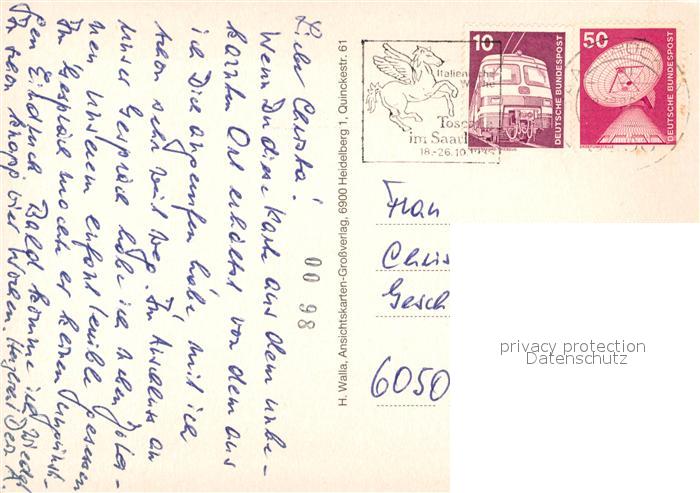 Liebe Christa!
Wenn Du diese Karte aus dem unbe-
kannten Ort erhältst von dem aus
ich Dich angerufen habe, bin ich
schon sehr weit weg. Im Anschluss an
unser Gespräch habe ich
nen unseren
Im Gespräch machte er keinen
den Eindruck. Bald komme ich wieder
In schon knapp vier Wochen. Herzlichst Dein
00 98
H. Walla, Ansichtskarten-Großverlag, 6900 Heidelberg 1, Quinckestr. 61
Italienische
Woche
im Saarl
18.-26.10.
10
DEUTSCHE BUNDESPOST
50
DEUTSCHE BUNDESPOST
Frau
Chris
Gesch
6050
privacy protection
Datenschutz